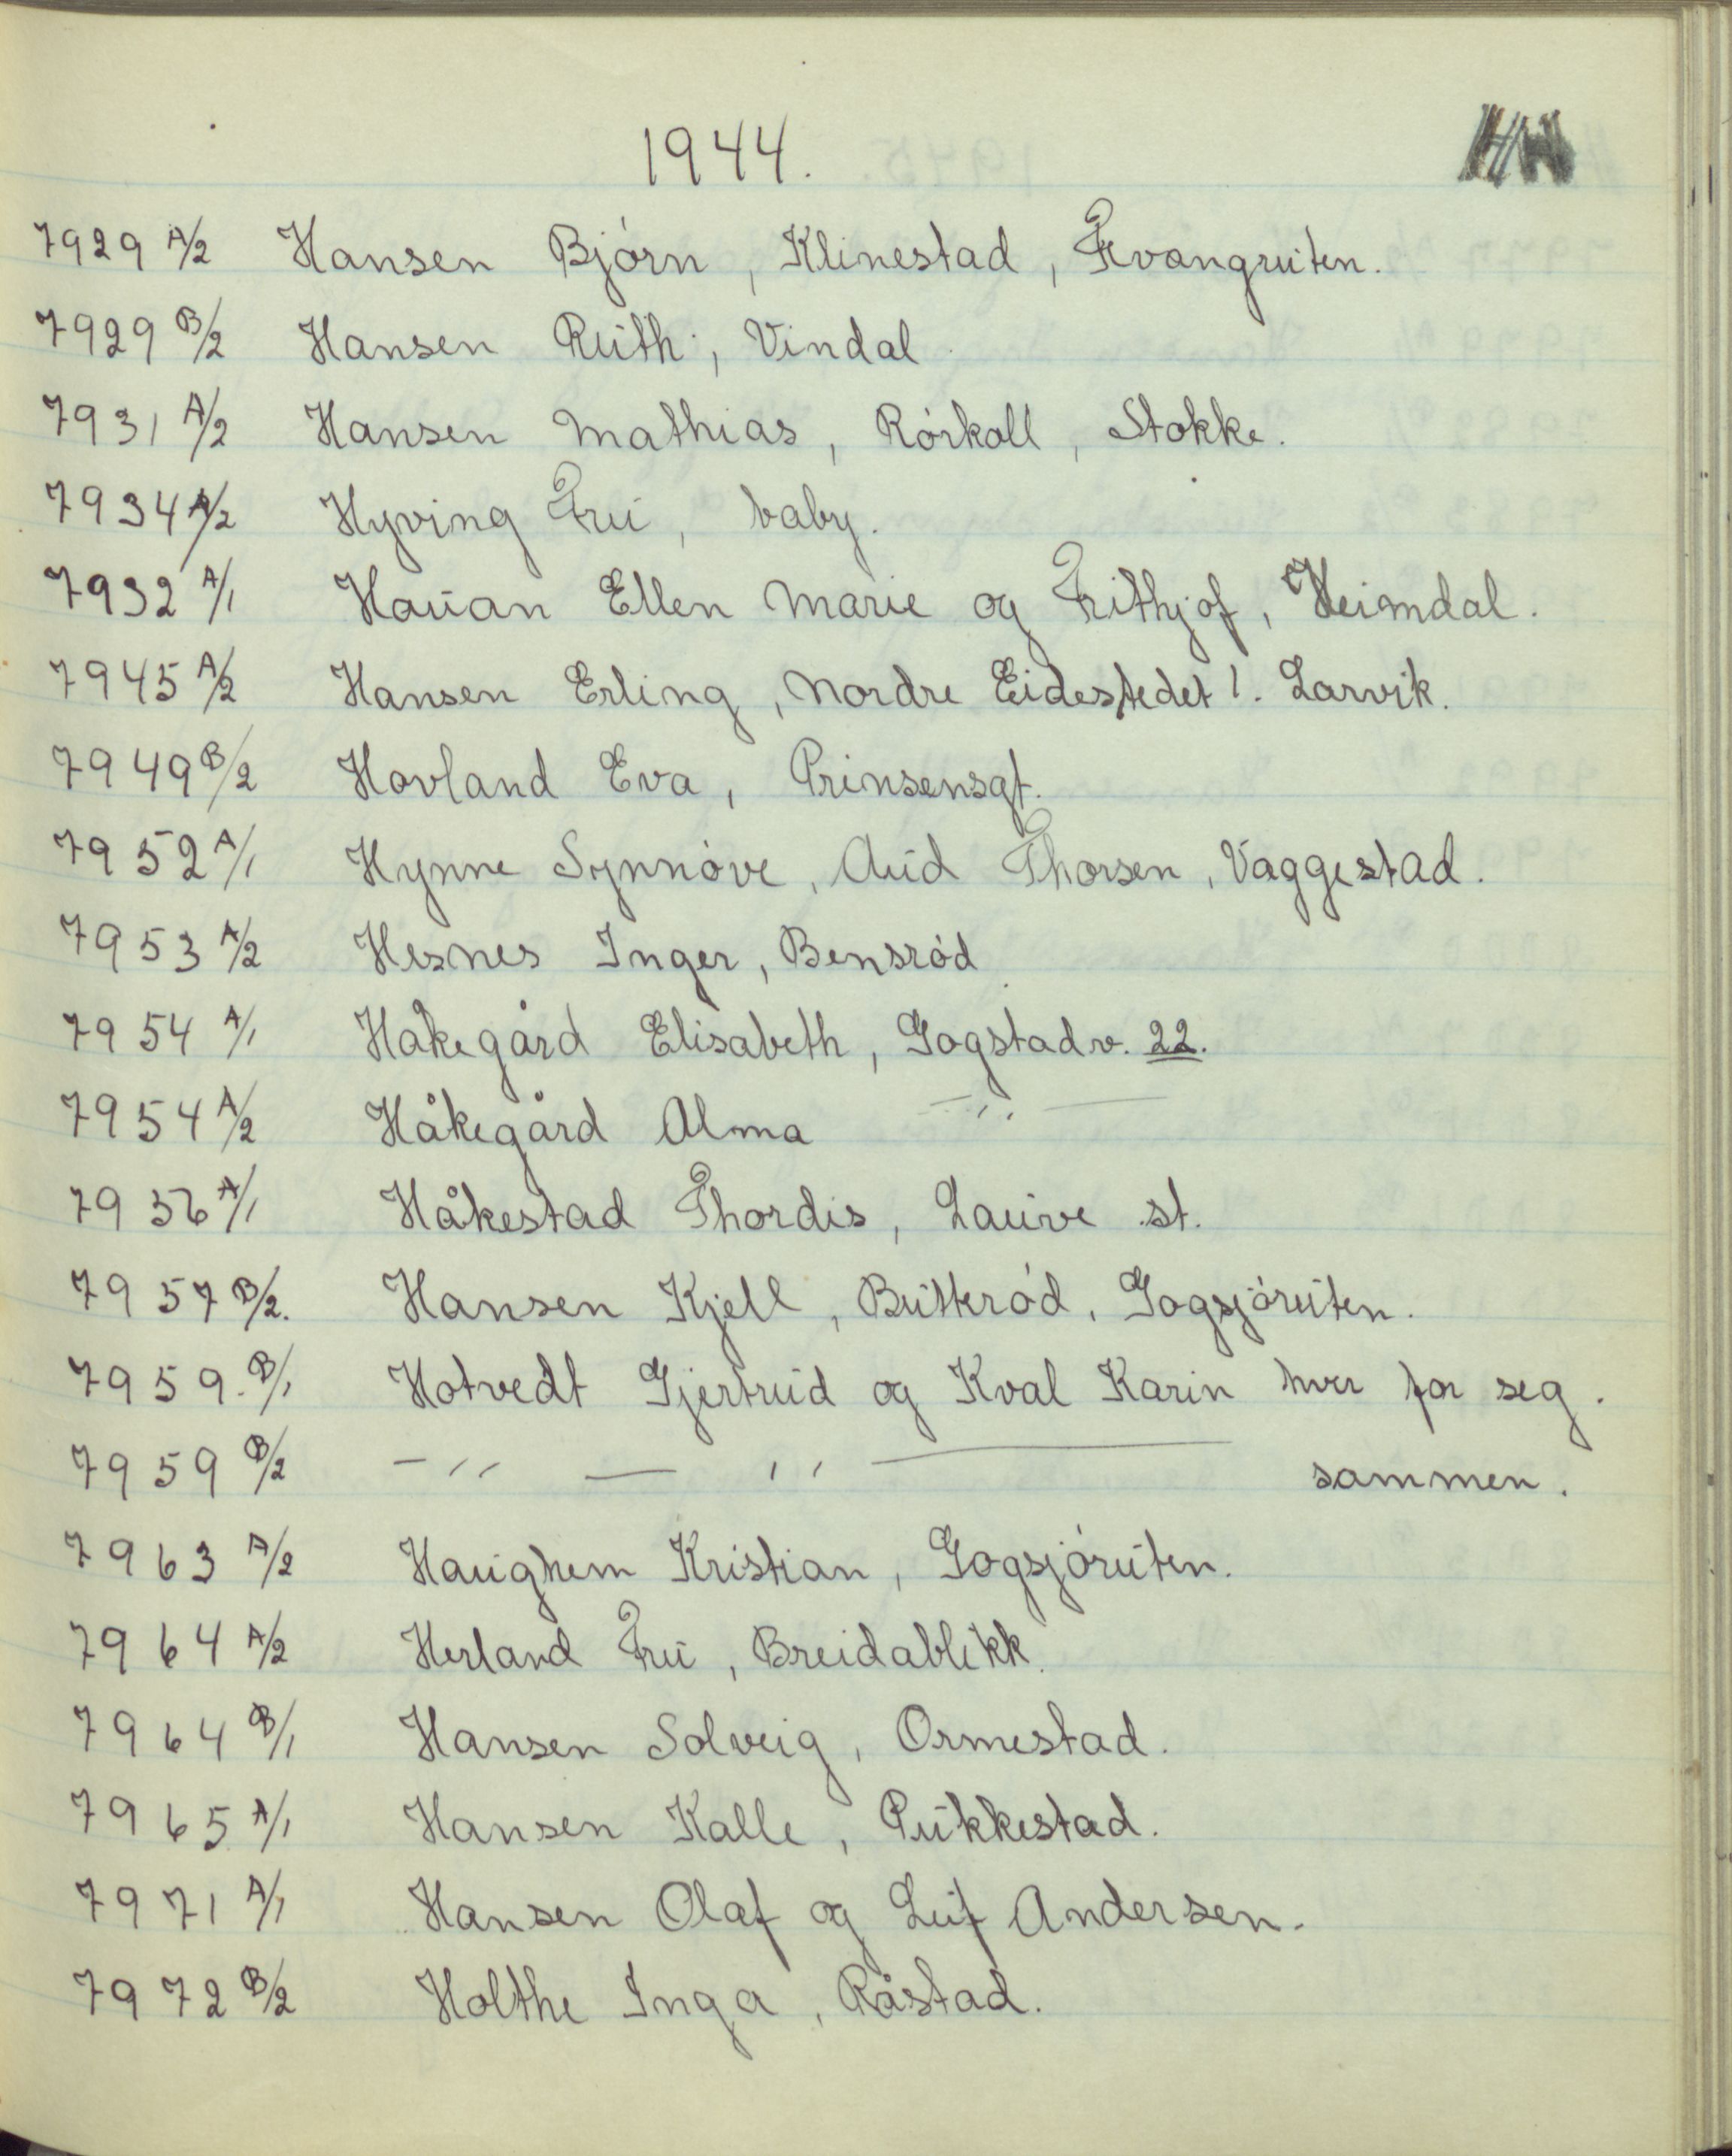 1944.
7929 A/2 Hansen Bjørn, Klinestad, Kvangruten.
7929 B/2 Hansen Ruth, Vindal
7931 A/2 Hansen Mathias, Rørkoll, Stokke.
7934 A/2 Hyving Fru, baby.
7932 A/1 Hauan Ellen Marie og Frithjof, Heimdal.
7945 A/2 Hansen Erling, Nordre Eidestedet 1. Larvik.
7949 B/2 Hovland Eva, Prinsensgt.
7952 A/1 Hynne Synnøve, Aud Thorsen, Vaggestad.
7953 A/2 Hesnes Inger, Bensrød
7954 A/1 Håkegård Elisabeth, Gogstadv. 22.
7954 A/2 Håkegård Alma —"—
7956 A/1 Håkestad Thordis, Lauve st.
7957 B/2. Hansen Kjell, Butkrød, Gogsjøruten.
7959. B/1 Hotvedt Gjertrud og Kval Karin hver for seg.
7959 B/2 —"— " — sammen.
7963 A/2 Haughem Kristian, Gogsjøruten.
7964 A/2 Herland Fru, Breidablikk.
7964 B/1 Hansen Solveig, Ormestad.
7965 A/1 Hansen Kalle, Pukkestad.
7971 A/1 Hansen Olaf og Leif Andersen.
7972 B/2 Holthe Inga, Råstad.